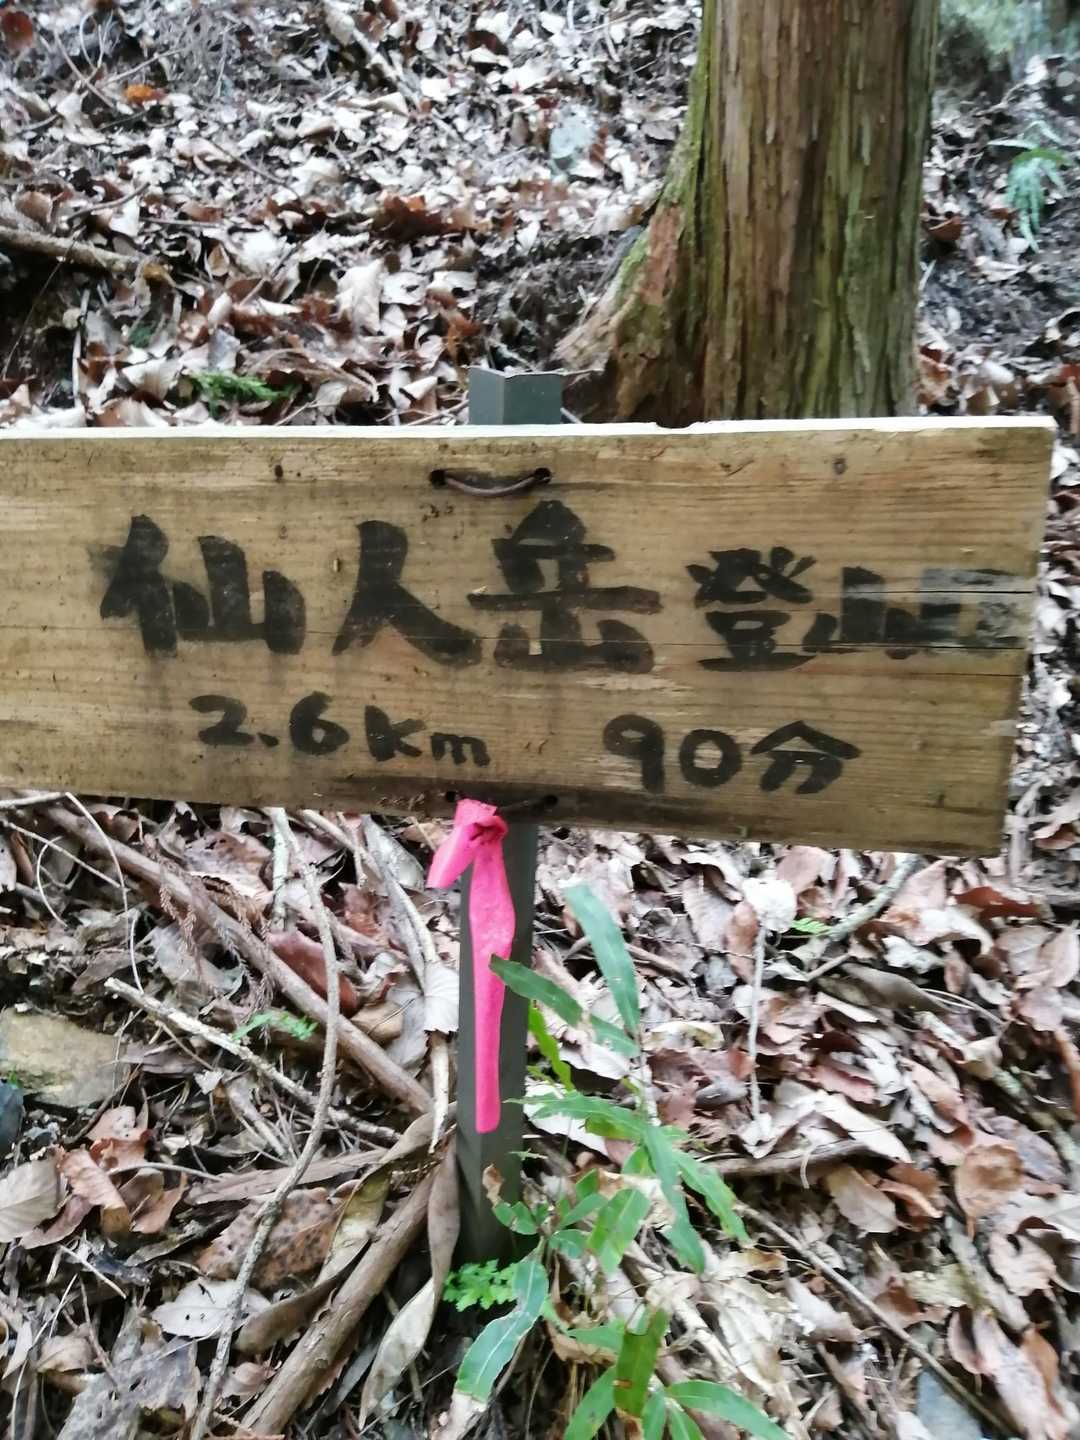 仙人岳登山
2.6km 90分